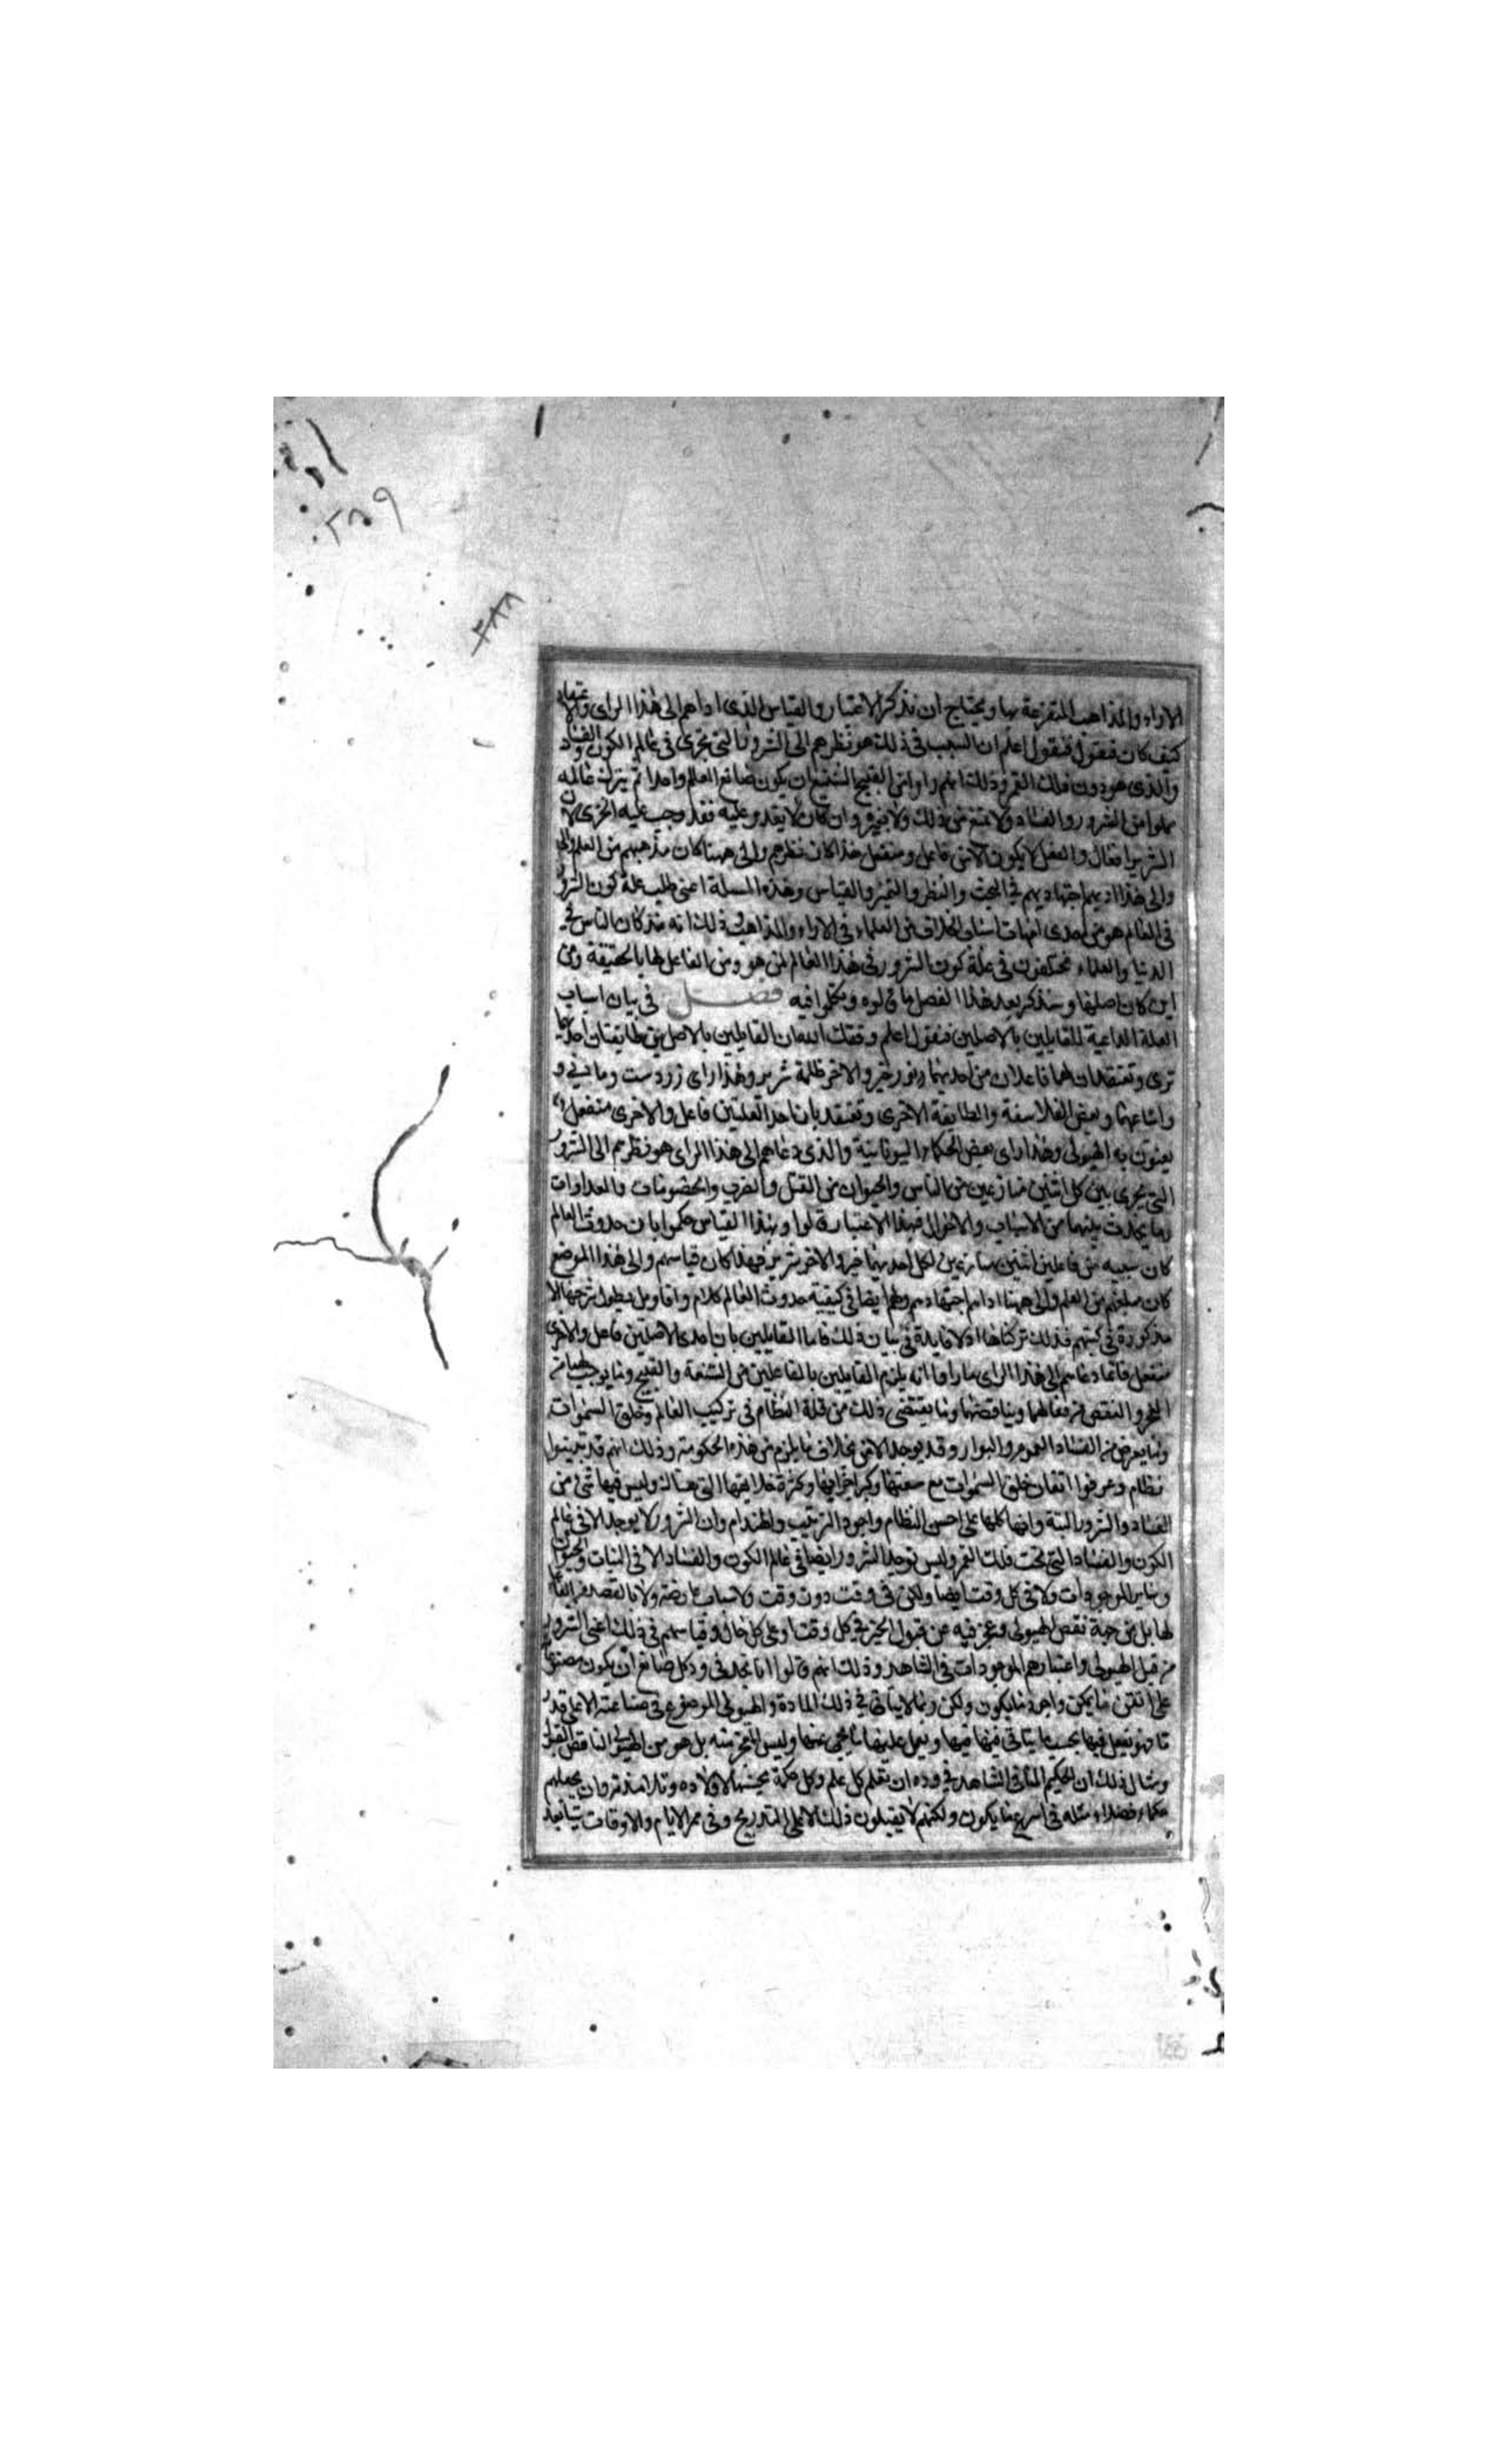 ٢٨٩
٢٨٨
الاراء والمذاهب المتفرعة بها ويحتاج ان نذكر الاعتبار والقياس الذى اداهم الى هذا الراى والاعتقاد
كيف كان فنقول اعلم ان السبب فى ذلك هو نظرهم الى الشرور التى تجرى فى عالم الكون والفساد
والذى هو دون فلك القمر وذلك انهم راوا من القبيح الشنيع ان يكون صانع العالم واحدا ثم يترك عالمه
مملوا من الشرور والفساد ولا يمنع من ذلك ولا يغير وان كان لا يقدر عليه فقد وجب عليه العجز لان
الشرير افعال والفعل لا يكون الا من فاعل ومنفعل هذا كان نظرهم والى ههنا كان مذهبهم من العلم
والى هذا اديهم اجتهاديهم فى البحث والنظر والتميز والقياس وهذه المسلة اعنى طلب علة كون الشرور
فى العالم هو من احدى امهات اسباب الخلاف من العلماء فى الاراء والمذاهب وذلك انه مذ كان الناس فى
الدنيا والعلماء مختلفون فى علة كون الشرور فى هذا العالم لمن هو ومن الفاعل لها بالحقيقة ومن
اين كان اصلها وسنذكر بعد هذا الفصل ما قالوه وتكلموا فيه فصل فى بيان اسباب
العلة الداعية للقايلين بالاصلين فنقول اعلم وفقك الله ان القايلين بالاصلين طايفتان احديهما
ترى وتعتقد انهما فاعلان من احديهما نور خير والاخر ظلمة شرير وهذا راى زردست ومانى و
واتباعهما وبعض الفلاسفة والطايفة الاخرى وتعتقد بان احد العلتين فاعل والاخرى منفعل
يعنون به الهيولى وهذا راى بعض الحكماء اليونانية والذى دعاهم الى هذا الراى هو نظرهم الى الشرور
التى يجرى بين كل اثنين متنازعين من الناس والحيوان من القتل والضرب والخصومات والعداوات
وما يحدث بينهما من الاسباب والاحوال فبهذا الاعتبار قالوا وبهذا القياس حكموا بان حدوث العالم
كان سببه من فاعلين اثنين متنازعين لكل احديهما خير والاخر شرير فهذا كان قياسهم والى هذا الموضع
كان مبلغهم من العلم والى ههنا اداهم اجتهادهم ولهم ايضا فى كيفية حدوث العالم كلام واقاويل يطول شرحها
مذكورة فى كتبهم فلذلك تركناها اذ لا فايدة فى بيان ذلك فاما القايلين بان احدى الاصلين فاعل والاخرى
منفعل فانما دعاهم الى هذا الراى ما راوا انه يلزم القايلين بالفاعلين من الشنعة والقبيح وما يوجب
العجز والنقص من فعالهما ويناقضهما وما يقتضى ذلك من قلة النظام فى تركيب العالم وخلق السموات
وما يعرض من الفساد العموم والبوار وقد يوجد الامر بخلاف ما يلزم من هذه الحكومة وذلك انهم قد تبينوا
نظام وعرفوا اتقان خلق السموات مع سعتها وكبر اجزايها وكثرة خلايقها التى هناك وليس فيها شى من
الفساد والشرور البتة وانها كلها على احسن النظام واجود الترتيب والهندام وان الشرور لا يوجد الا فى عالم
الكون والفساد التى تحت فلك القمر وليس توجد الشرور ايضا فى عالم الكون والفساد الا فى النبات والحيوان
وساير الموجودات ولا فى كل وقت ايضا ولكن فى وقت دون وقت ولاسباب عارضة ولا بالقصد من الفاعل
لها بل من جهة نقص الهيولى وعجز فيه عن قبول الخير فى كل وقت وعلى كل حال وقياسهم فى ذلك اعنى الشرور
من قبل الهيولى واعتبارهم الموجودات فى الشاهد وذلك انهم قالوا انا نجد فى ود كل صانع ان يكون مصنوعا
على اتقن ما يمكن واجود ما يكون ولكن ربما لا يتاتى فى ذلك المادة والهيولى الموضوع فى صناعته الا على قدر
ما فهو يفعل فيها بحسب ما يتاتى فيها ويعمل عليها ما يجى منها وليس العجز منه بل هو من الهيولى الناقص القبول
ومثال ذلك ان الحكيم المتانى الشاهد فى وده ان يعلم كل علم وكل حكمة يحسنها لاولاده وتلامذته وان يجعلهم
حكماء فضلاء مثله فى اسرع ما يكون ولكنهم لا يقبلون ذلك الا على التدريج وفى ممر الايام والاوقات شيا بعد